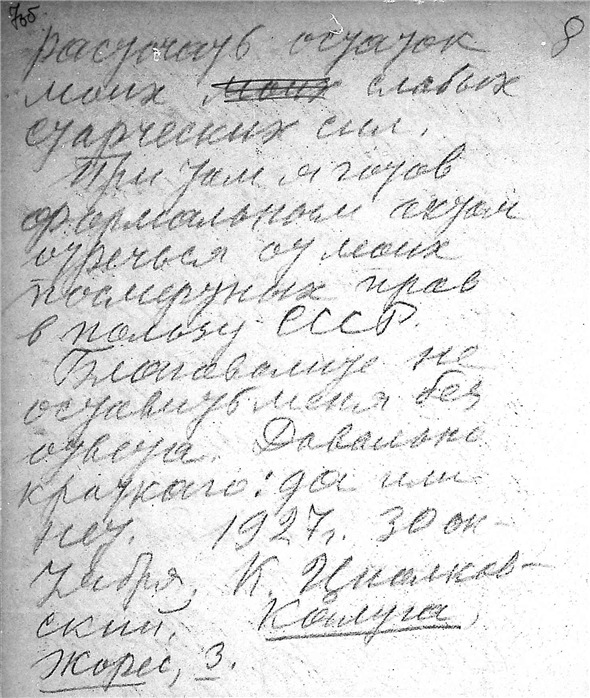 8
расточать остаток
моих моих слабых
старческих сил.
При том я готов
формальном актом
отречься от моих
посмертных прав
в пользу СССР.
Благоволите не
оставить меня без
ответа. Довольно
краткаго: да или
нет. 1927 г. 30 ок-
тября, К. Циолков-
ский, Калуга,
Жорес, 3.